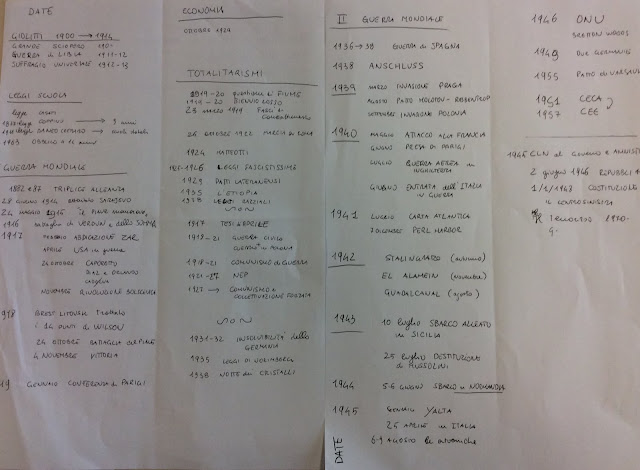 DATE
GIOLITTI 1900 → 1914
GRANDE SCIOPERO
GUERRA di LIBIA 1911-12
SUFFRAGIO UNIVERSALE 1912-13
LEGGI SCUOLA
legge
GUERRA MONDIALE
1882 TRIPLICE ALLEANZA
28 giugno 1914 SARAJEVO
24 maggio
1916 battaglia di VERDUN e della SOMME
1917 ABDICAZIONE ZAR
APRILE USA in guerra
24 OTTOBRE CAPORETTO
DIAZ e ORLANDO
CADORNA
NOVEMBRE RIVOLUZIONE BOLSCEVICA
918 BREST LITOVSK
i 14 punti di WILSON
24 OTTOBRE BATTAGLIA del PIAVE
4 NOVEMBRE VITTORIA
19 GENNAIO CONFERENZA di PARIGI
ECONOMIA
OTTOBRE 1929
TOTALITARISMI
1919-20 questione di FIUME
1919-20 BIENNIO ROSSO
23 marzo 1919 Fasci di
combattimento
28 OTTOBRE 1922 MARCIA su ROMA
1924 MATTEOTTI
1925-1926 LEGGI FASCISTISSIME
1929 PATTI LATERANENSI
1935 L'ETIOPIA
1938 LEGGI RAZZIALI
1917 TESI di APRILE
1918-21 GUERRA CIVILE
1918-21 COMUNISMO di GUERRA
1921-27 NEP
1927 → COMUNISMO e
COLLETTIVIZZAZIONE FORZATA
1931-32 INSOLVIBILITÀ della
GERMANIA
1935 LEGGI di NORIMBERGA
1938 NOTTE dei CRISTALLI
II GUERRA MONDIALE
1936 → 39 GUERRA di SPAGNA
1938 ANSCHLUSS
1939 MARZO INVASIONE PRAGA
AGOSTO PATTO MOLOTOV - RIBBENTROP
SETTEMBRE INVASIONE POLONIA
1940 MAGGIO ATTACCO alla FRANCIA
GIUGNO PRESA di PARIGI
LUGLIO GUERRA AEREA in
INGHILTERRA
GIUGNO ENTRATA dell'ITALIA
in GUERRA
1941 LUGLIO CARTA ATLANTICA
DICEMBRE PERL HARBOR
1942 STALINGRADO (autunno)
EL ALAMEIN (novembre)
GUADALCANAL (agosto)
1943 10 luglio SBARCO ALLEATO
in SICILIA
25 luglio DESTITUZIONE
di MUSSOLINI
1944 5-6 GIUGNO SBARCO in NORMANDIA
1945 GENNAIO YALTA
25 APRILE in ITALIA
6-9 AGOSTO le atomiche
DATE
1946 ONU
BRETTON WOODS
1949 DUE GERMANIE
1955 PATTO di VARSAVIA
1951 CECA
1957 CEE
CLN al governo e AMNISTIA
2 giugno 1946 REPUBBLICA
1/1/1948 COSTITUZIONE